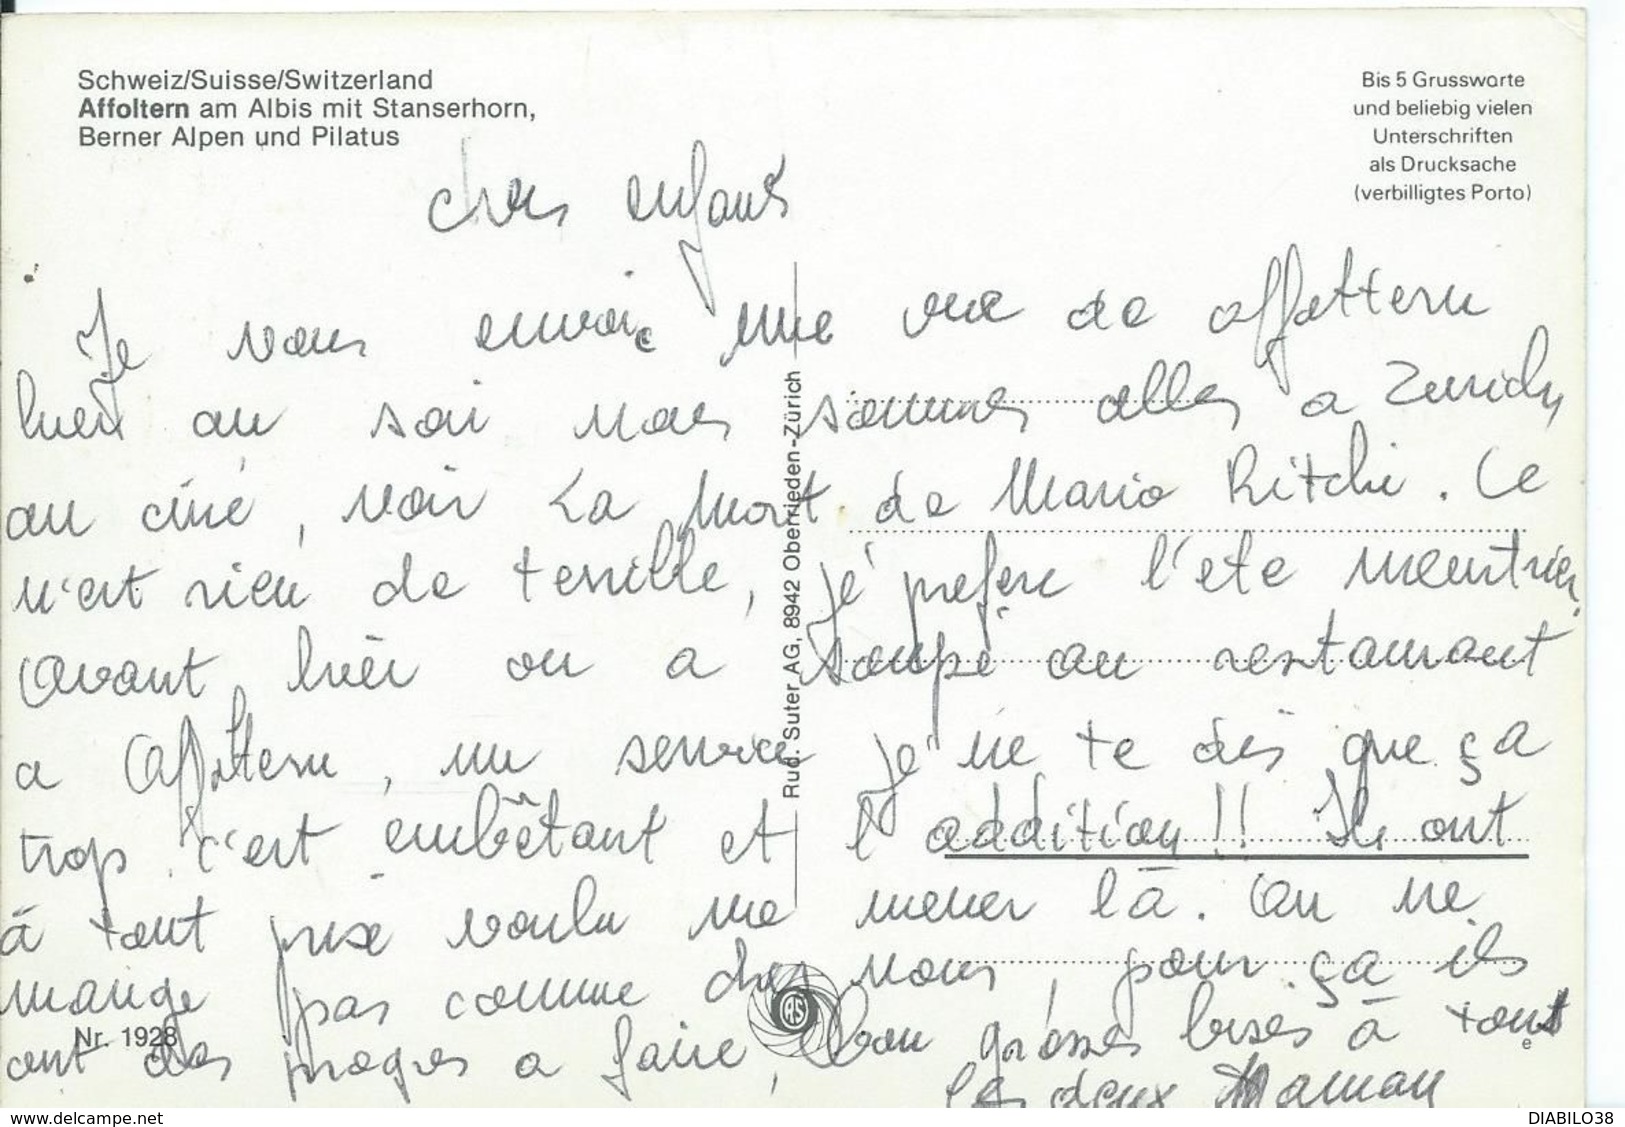 Schweiz/Suisse/Switzerland
Affoltern am Albis mit Stanserhorn,
Berner Alpen und Pilatus
Bis 5 Grussworte
und beliebig vielen
Unterschriften
als Drucksache
(verbilligtes Porto)
chers enfants
Je vous envoie une vue de affoltern
hier au soir nous sommes allés a Zurich
au ciné, voir La Mort de Mario Ritchi. Ce
n'est rien de terrible, je préfère l'été meurtrier.
avant hier on a soupé au restaurant
a Affoltern, un service je ne te dis que ça
trop c'est embêtant et l'addition!! Ils ont
à tout prix voulu me mener là. On ne
mange pas comme chez nous, pour ça ils
ont des progrès a faire, bon grosses bises à tous
Les deux Maman
Rud. Suter AG, 8942 Oberrieden-Zürich
Nr. 1928
e
www.delcampe.net
DIABILO38